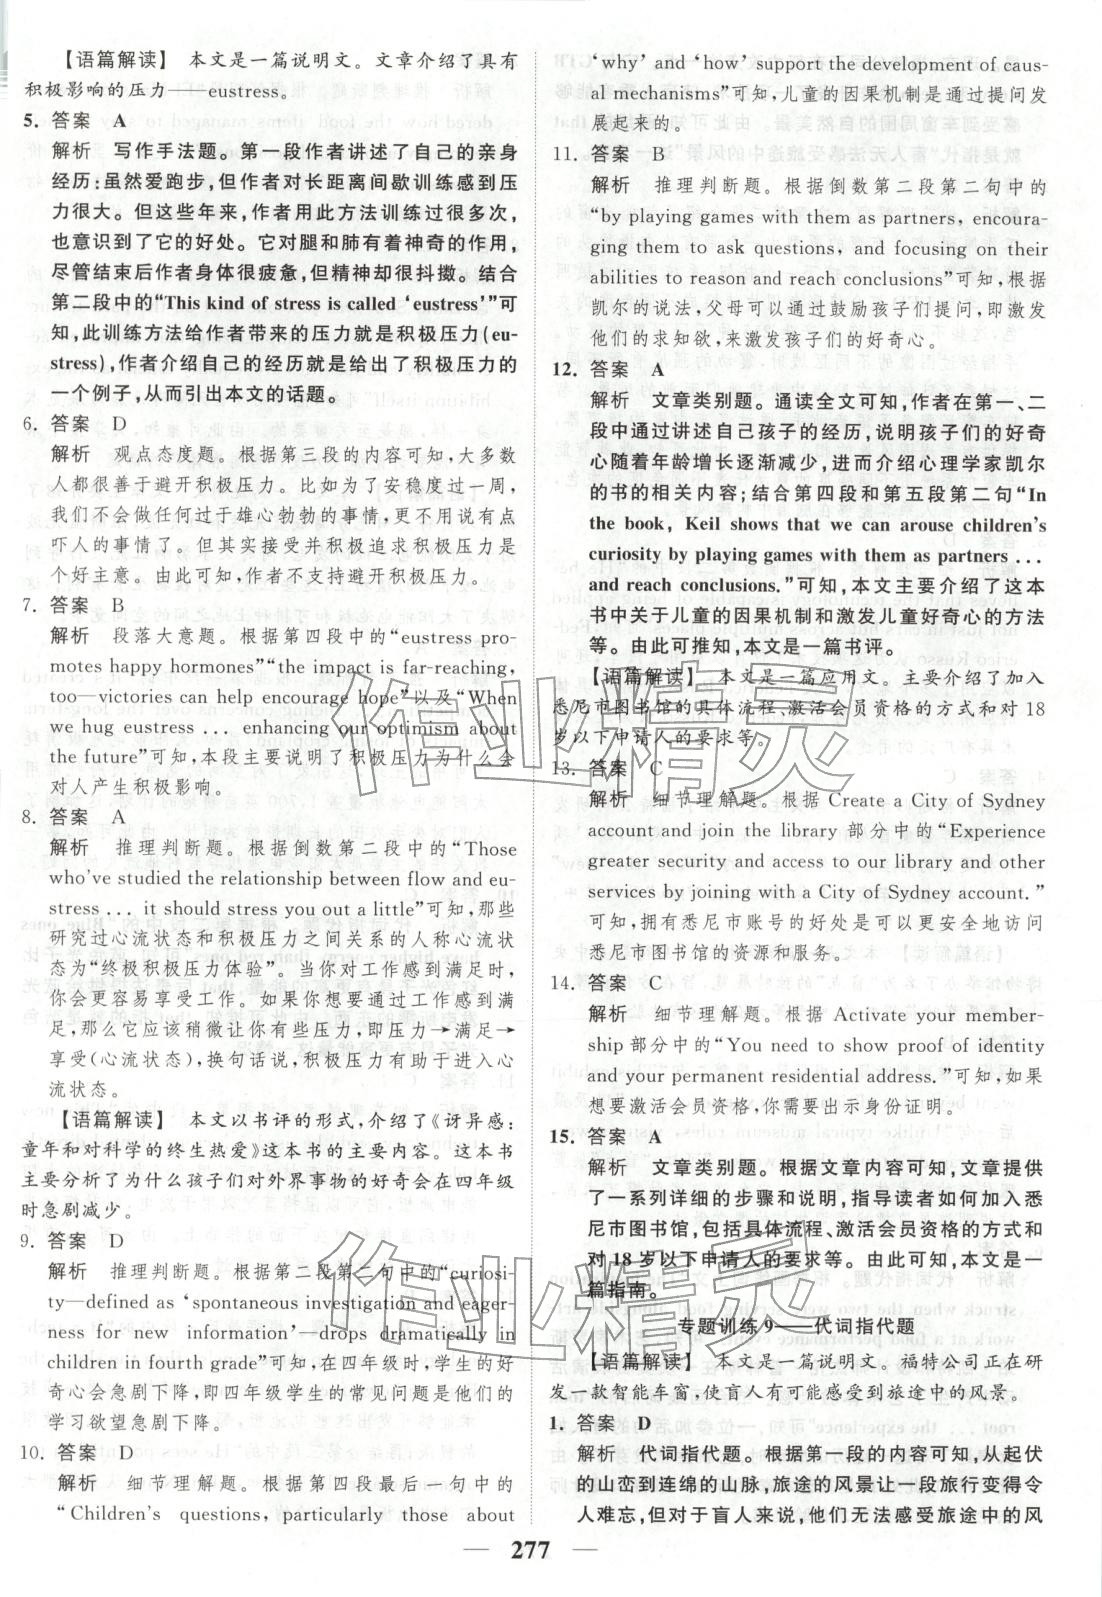 【语篇解读】 本文是一篇说明文。文章介绍了具有
积极影响的压力——eustress。
5. 答案 A
解析 写作手法题。第一段作者讲述了自己的亲身
经历:虽然爱跑步,但作者对长距离间歇训练感到压
力很大。但这些年来,作者用此方法训练过很多次,
也意识到了它的好处。它对腿和肺有着神奇的疗效,
尽管结束后作者身体很疲惫,但精神却很抖擞。结合
第二段中的“This kind of stress is called ‘eustress’”可
知,此训练方法给作者带来的压力就是积极压力(eu-
stress),作者介绍自己的经历就是给出了积极压力的
一个例子,从而引出本文的话题。
6. 答案 D
解析 观点态度题。根据第三段的内容可知,大多数
人都很善于避开积极压力。比如为了安稳度过一周,
我们不会做任何过于雄心勃勃的事情,更不用说有点
吓人的事情了。但其实接受并积极追求积极压力是
个好主意。由此可知,作者不支持避开积极压力。
7. 答案 B
解析 段落大意题。根据第四段中的“eustress pro-
motes happy hormones”“the impact is far-reaching,
too—victories can help encourage hope”以及“When
we hug eustress ... enhancing our optimism about
the future”可知,本段主要说明了积极压力为什么会
对人产生积极影响。
8. 答案 A
解析 推理判断题。根据倒数第二段中的“Those
who've studied the relationship between flow and eu-
stress ... it should stress you out a little”可知,那些
研究过心流状态和积极压力之间关系的人称心流状
态为“终极积极压力体验”。当你对工作感到满足时,
你会更容易享受工作。如果你想要通过工作感到满
足,那么它应该稍微让你有些压力,即压力→满足→
享受(心流状态),换句话说,积极压力有助于进入心
流状态。
【语篇解读】 本文以书评的形式,介绍了《讶异感:
童年和对科学的终生热爱》这本书的主要内容。这本书
主要分析了为什么孩子们对外界事物的好奇会在四年级
时急剧减少。
9. 答案 D
解析 推理判断题。根据第二段第二句中的“curiosi-
ty—defined as ‘spontaneous investigation and eager-
ness for new information’—drops dramatically in
children in fourth grade”可知,在四年级时,学生的好
奇心会急剧下降,即四年级学生的常见问题是他们的
学习欲望急剧下降。
10. 答案 D
解析 细节理解题。根据第四段最后一句中的
“Children's questions, particularly those about
‘why’ and ‘how’ support the development of caus-
al mechanisms”可知,儿童的因果机制是通过提问发
展起来的。
11. 答案 B
解析 推理判断题。根据倒数第二段第二句中的
“by playing games with them as partners, encoura-
ging them to ask questions, and focusing on their
abilities to reason and reach conclusions”可知,根据
凯尔的说法,父母可以通过鼓励孩子们提问,即激发
他们的求知欲,来激发孩子们的好奇心。
12. 答案 A
解析 文章类别题。通读全文可知,作者在第一、二
段中通过讲述自己孩子的经历,说明孩子们的好奇
心随着年龄增长逐渐减少,进而介绍心理学家凯尔
的书的相关内容;结合第四段和第五段第二句“In
the book, Keil shows that we can arouse children's
curiosity by playing games with them as partners ...
and reach conclusions.”可知,本文主要介绍了这本
书中关于儿童的因果机制和激发儿童好奇心的方法
等。由此可推知,本文是一篇书评。
【语篇解读】 本文是一篇应用文。主要介绍了加入
悉尼市图书馆的具体流程、激活会员资格的方式和对18
岁以下申请人的要求等。
13. 答案 C
解析 细节理解题。根据 Create a City of Sydney
account and join the library 部分中的“Experience
greater security and access to our library and other
services by joining with a City of Sydney account.”
可知,拥有悉尼市账号的好处是可以更安全地访问
悉尼市图书馆的资源和服务。
14. 答案 C
解析 细节理解题。根据 Activate your member-
ship 部分中的“You need to show proof of identity
and your permanent residential address.”可知,如果
想要激活会员资格,你需要出示身份证明。
15. 答案 A
解析 文章类别题。根据文章内容可知,文章提供
了一系列详细的步骤和说明,指导读者如何加入悉
尼市图书馆,包括具体流程、激活会员资格的方式和
对18岁以下申请人的要求等。由此可知,本文是一
篇指南。
专题训练9——代词指代题
【语篇解读】 本文是一篇说明文。福特公司正在研
发一款智能车窗,使盲人有可能感受到旅途中的风景。
1. 答案 D
解析 代词指代题。根据第一段的内容可知,从起伏
的山峦到连绵的山脉,旅途的风景让一段旅行变得令
人难忘,但对于盲人来说,他们无法感受旅途中的风
277
作业精灵
作业精灵